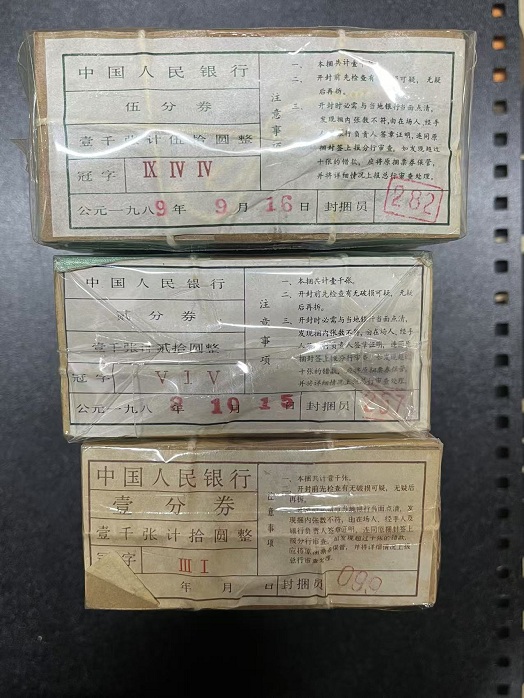 中国人民银行
伍分券
壹千张计伍拾圆整
冠字 Ⅸ Ⅳ Ⅳ
公元一九八9年 9月 16日 封捆员 282
注意事项
一、本捆共计壹千张。
二、开封前先检查有无破损可疑，无疑
后再拆。
三、开封时必需与当地银行当面点清，
发现捆内张数不符，由在场人、经手
人、银行负责人签章证明，连同原
捆封签上报分行审查，如发现超过
十张的错款，应将原捆票券保管，
并将详细情况上报总行审查处理。
中国人民银行
贰分券
壹千张计贰拾圆整
冠字 Ⅴ Ⅰ Ⅴ
公元一九八 年 10月 15日 封捆员
注意事项
一、本捆共计壹千张。
二、开封前先检查有无破损可疑，无疑
后再拆。
三、开封时必需与当地银行当面点清，
发现捆内张数不符，由在场人、经手
人、银行负责人签章证明，连同原
捆封签上报分行审查，如发现超过
十张的错款，应将原捆票券保管，
并将详细情况上报总行审查处理。
中国人民银行
壹分券
壹千张计拾圆整
冠字 Ⅲ Ⅰ
年 月 日 封捆员 099
注意事项
一、本捆共计壹千张。
二、开封前先检查有无破损可疑，无疑后
再拆。
三、开封时必需与当地银行当面点清，发
现捆内张数不符，由在场人、经手人及
银行负责人签章证明，连同原捆封签上
报分行审查，如发现超过十张的错款，
应将原捆票券保管，并将详细情况上报
总行审查处理。